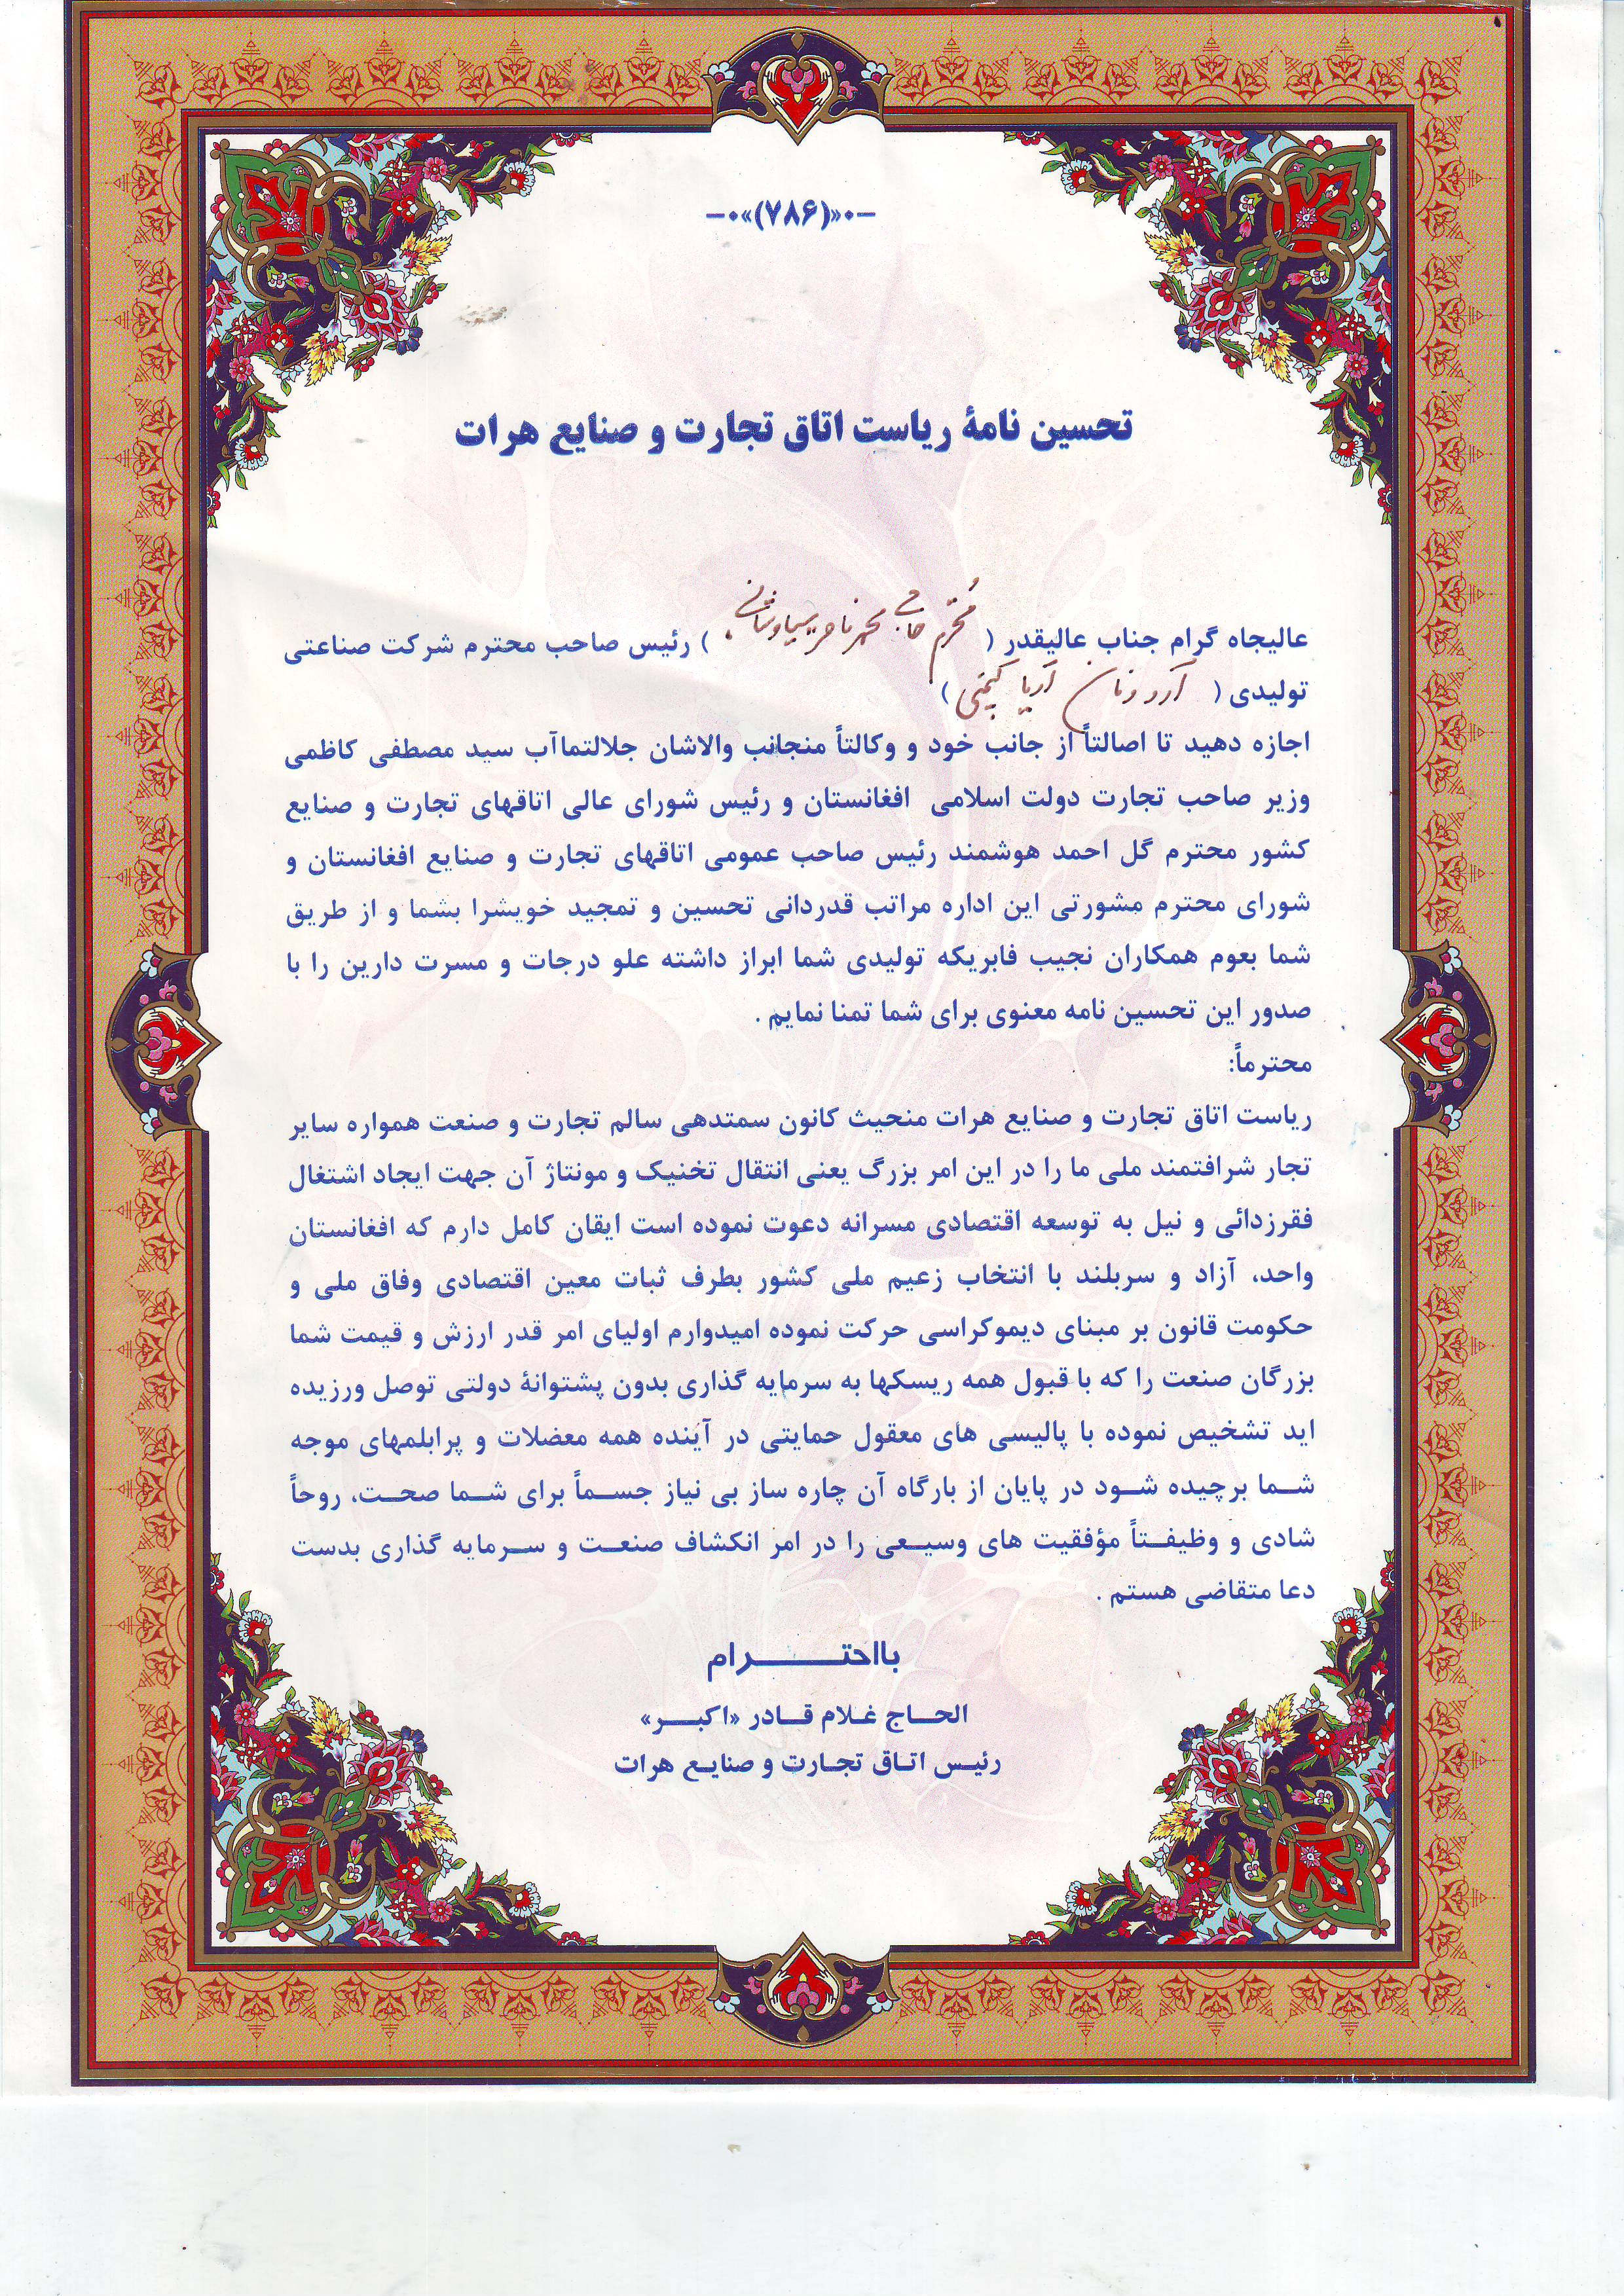 -•«(۷۸۶)»•-
تحسین نامهٔ ریاست اتاق تجارت و صنایع هرات
عالیجاه گرام جناب عالیقدر ( محترم حاجی محمد ناصر سیاوشانی ) رئیس صاحب محترم شرکت صناعتی
تولیدی ( آرد و نان آریا )
اجازه دهید تا اصالتاً از جانب خود و وکالتاً منجانب والاشان جلالتماآب سید مصطفی کاظمی
وزیر صاحب تجارت دولت اسلامی افغانستان و رئیس شورای عالی اتاقهای تجارت و صنایع
کشور محترم گل احمد هوشمند رئیس صاحب عمومی اتاقهای تجارت و صنایع افغانستان و
شورای محترم مشورتی این اداره مراتب قدردانی تحسین و تمجید خویشرا بشما و از طریق
شما بعوم همکاران نجیب فابریکه تولیدی شما ابراز داشته علو درجات و مسرت دارین را با
صدور این تحسین نامه معنوی برای شما تمنا نمایم .
محترماً:
ریاست اتاق تجارت و صنایع هرات منحیث کانون سمتدهی سالم تجارت و صنعت همواره سایر
تجار شرافتمند ملی ما را در این امر بزرگ یعنی انتقال تخنیک و مونتاژ آن جهت ایجاد اشتغال
فقرزدائی و نیل به توسعه اقتصادی مسرانه دعوت نموده است ایقان کامل دارم که افغانستان
واحد، آزاد و سربلند با انتخاب زعیم ملی کشور بطرف ثبات معین اقتصادی وفاق ملی و
حکومت قانون بر مبنای دیموکراسی حرکت نموده امیدوارم اولیای امر قدر ارزش و قیمت شما
بزرگان صنعت را که با قبول همه ریسکها به سرمایه گذاری بدون پشتوانهٔ دولتی توصل ورزیده
اید تشخیص نموده با پالیسی های معقول حمایتی در آینده همه معضلات و پرابلمهای موجه
شما برچیده شود در پایان از بارگاه آن چاره ساز بی نیاز جسماً برای شما صحت، روحاً
شادی و وظیفتاً مؤفقیت های وسیعی را در امر انکشاف صنعت و سرمایه گذاری بدست
دعا متقاضی هستم .
بااحترام
الحاج غلام قادر «اکبر»
رئیس اتاق تجارت و صنایع هرات